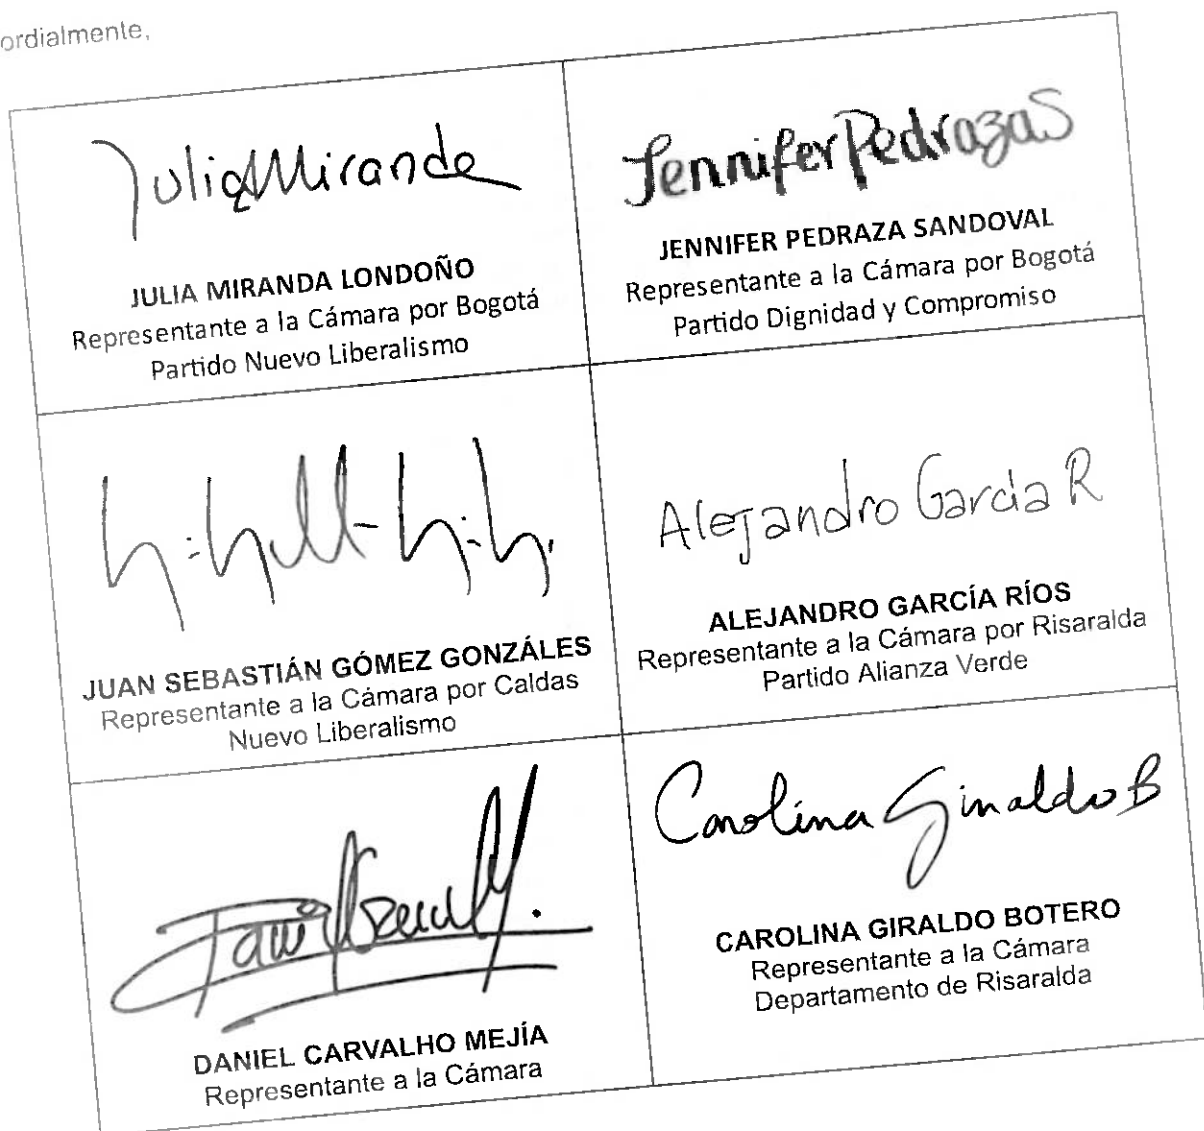 ordialmente,
JuliaMiranda
JULIA MIRANDA LONDOÑO
Representante a la Cámara por Bogotá
Partido Nuevo Liberalismo
Jennifer Pedraza S
JENNIFER PEDRAZA SANDOVAL
Representante a la Cámara por Bogotá
Partido Dignidad y Compromiso
JUAN SEBASTIÁN GÓMEZ GONZÁLES
Representante a la Cámara por Caldas
Nuevo Liberalismo
Alejandro García R
ALEJANDRO GARCÍA RÍOS
Representante a la Cámara por Risaralda
Partido Alianza Verde
DANIEL CARVALHO MEJÍA
Representante a la Cámara
Carolina Giraldo B
CAROLINA GIRALDO BOTERO
Representante a la Cámara
Departamento de Risaralda